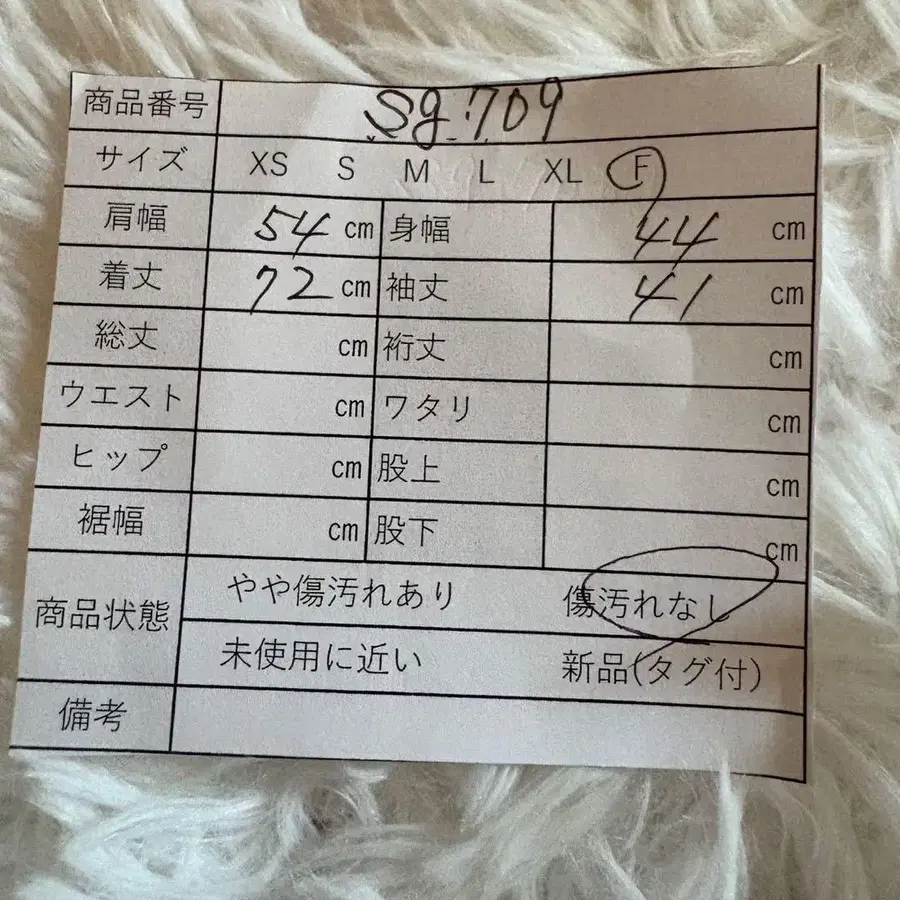 商品番号 Sg.709
サイズ XS S M L XL F
肩幅 54 cm 身幅 44 cm
着丈 72 cm 袖丈 41 cm
総丈 cm 裄丈 cm
ウエスト cm ワタリ cm
ヒップ cm 股上 cm
裾幅 cm 股下 cm
商品状態 やや傷汚れあり 傷汚れなし
未使用に近い 新品(タグ付)
備考